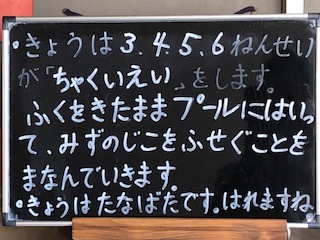 •きょうは3.4.5.6ねんせい
が「ちゃくいえい」をします。
ふくをきたままプールにはいっ
て、みずのじこをふせぐことを
まなんでいきます。
•きょうはたなばたです。はれますね